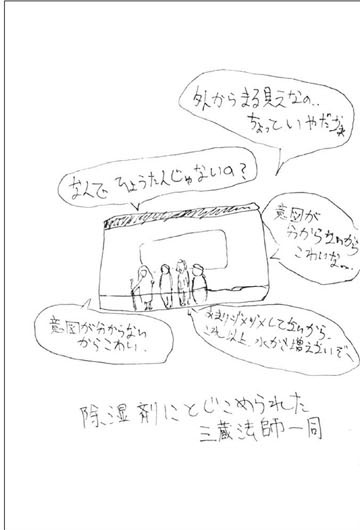 外からまる見えなの..
ちょっといやだなぁ
なんで、ひょうたんじゃないの?
意図が
分からないから
こわいな…
意図が分からない
からこわい..
あまりジメジメしてないから、
これ以上、水が増えないぞ
除湿剤にとじこめられた
三蔵法師一同